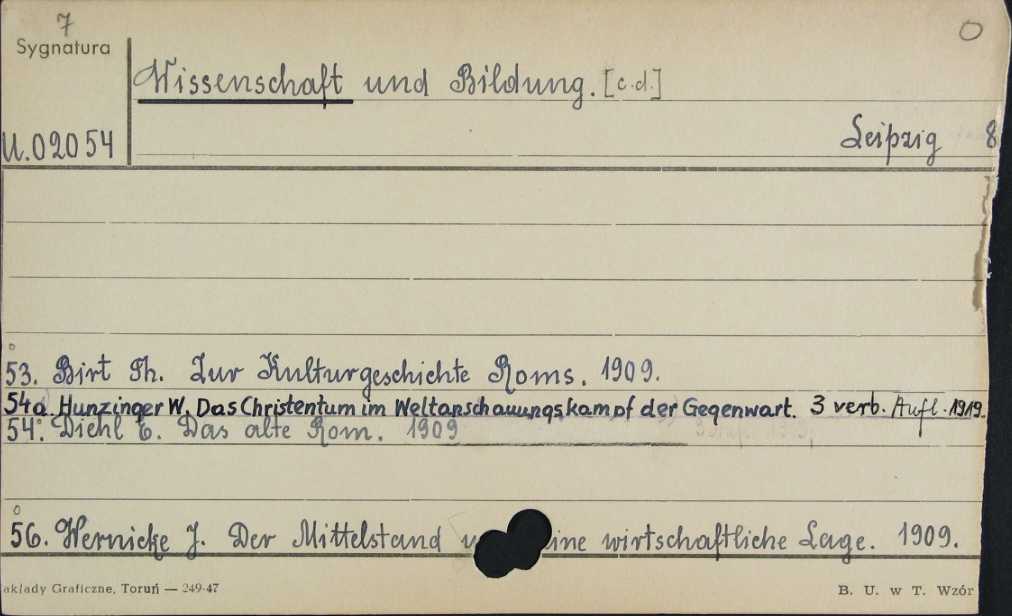 7
O
Sygnatura
Wissenschaft und Bildung. [c.d.]
U.02054
Leipzig 8
53. Birt Th. Zur Kulturgeschichte Roms. 1909.
54a. Hunzinger W. Das Christentum im Weltanschauungskampf der Gegenwart. 3 verb. Aufl. 1919.
54. Diehl E. Das alte Rom. 1909
56. Wernicke J. Der Mittelstand u ine wirtschaftliche Lage. 1909.
akłady Graficzne, Toruń — 249-47
B. U. w T. Wzór